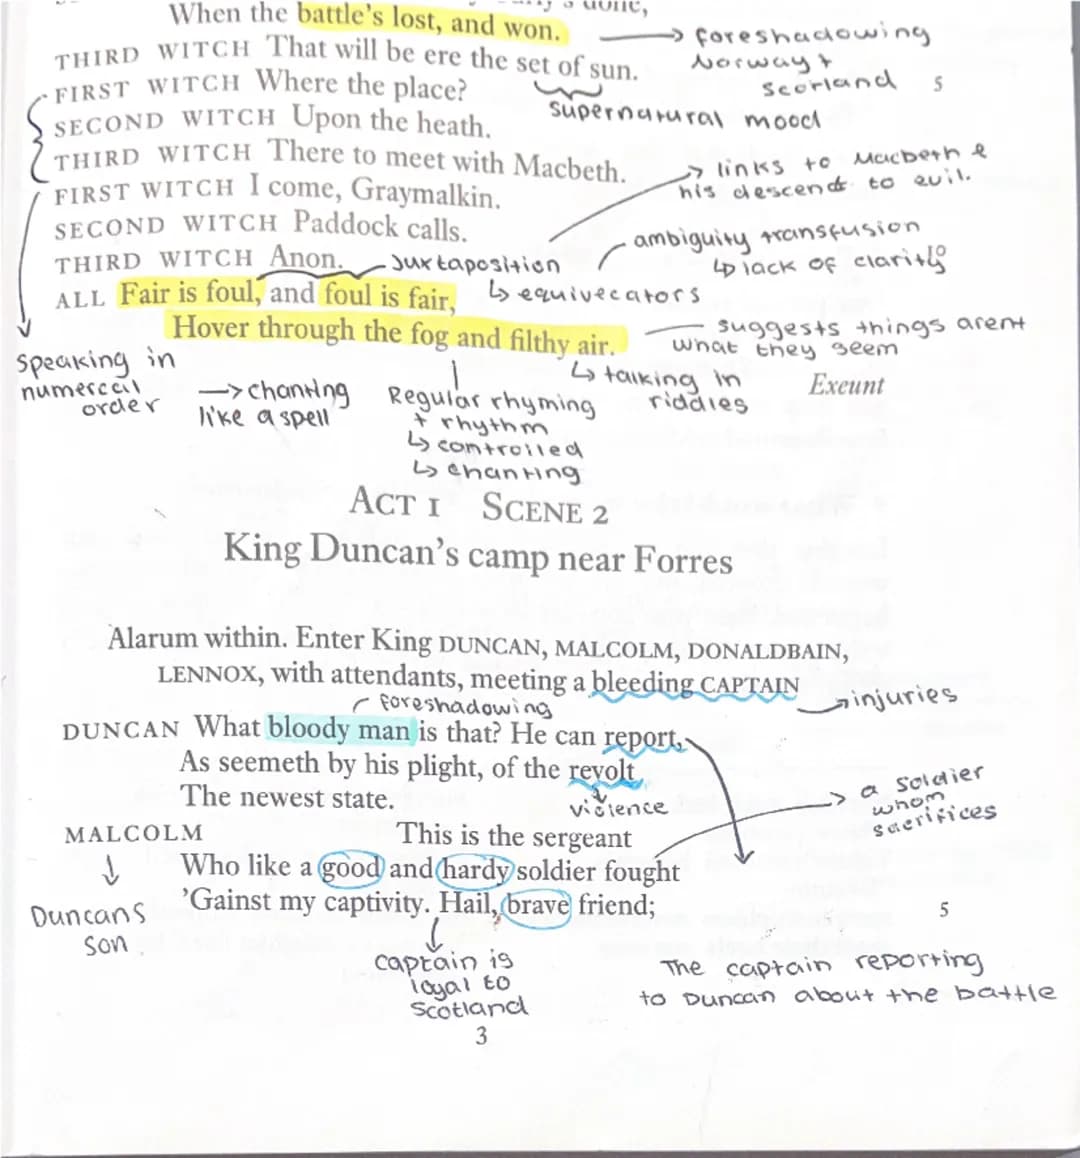 When the battle's lost, and won.
→ foreshadowing
Norway +
Scotland
THIRD WITCH That will be ere the set of sun.
5
supernatural mood
FIRST WITCH Where the place?
SECOND WITCH Upon the heath.
THIRD WITCH There to meet with Macbeth.
→ links to Macbeth &
his descend to evil.
FIRST WITCH I come, Graymalkin.
SECOND WITCH Paddock calls.
ambiguity transfusion
↳ lack of clarity
10
THIRD WITCH Anon.
Juxtaposition
↳ equivecators
ALL Fair is foul, and foul is fair,
Hover through the fog and filthy air.
suggests things arent
what they seem
↳ talking in
riddles
Exeunt
speaking in
numerccal
order
→ chanting
like a spell
Regular rhyming
+ rhythm
↳ controlled
↳ chanting
ACT 1 SCENE 2
King Duncan's camp near Forres
Alarum within. Enter King DUNCAN, MALCOLM, DONALDBAIN,
LENNOX, with attendants, meeting a bleeding CAPTAIN
→ injuries
foreshadowing
DUNCAN What bloody man is that? He can report,
As seemeth by his plight, of the revolt
The newest state.
violence
→ a soldier
whom
sacrifices
MALCOLM This is the sergeant
Who like a good and hardy soldier fought
'Gainst my captivity. Hail, brave friend;
5
Duncans
son
captain is
loyal to
Scotland
The captain reporting
to Duncan about the battle
3